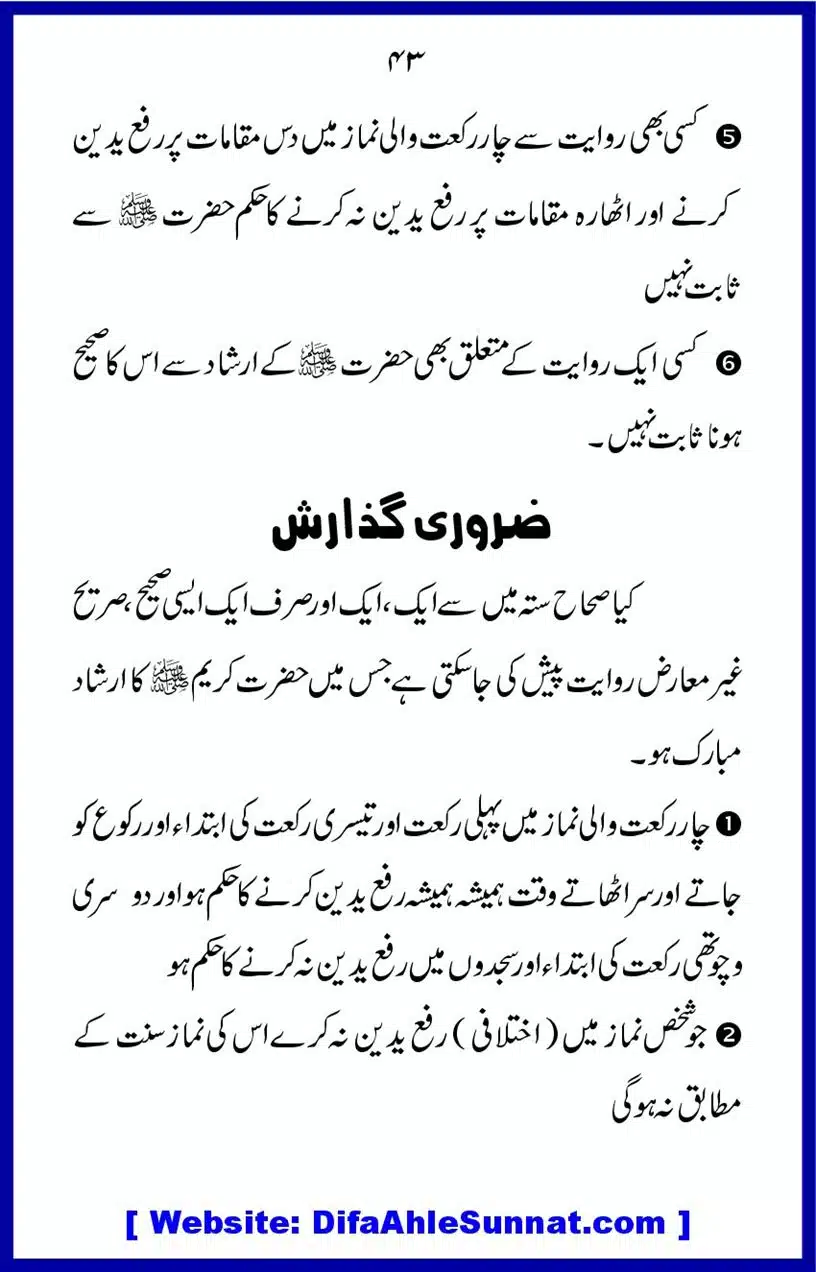 ۴۳
❺ کسی بھی روایت سے چار رکعت والی نماز میں دس مقامات پر رفع یدین
کرنے اور اٹھارہ مقامات پر رفع یدین نہ کرنے کا حکم حضرت ﷺ سے
ثابت نہیں
❻ کسی ایک روایت کے متعلق بھی حضرت ﷺ کے ارشاد سے اس کا صحیح
ہونا ثابت نہیں ۔
ضروری گذارش
کیا صحاح ستہ میں سے ایک ، ایک اور صرف ایک ایسی صحیح ، صریح
غیر معارض روایت پیش کی جا سکتی ہے جس میں حضرت کریم ﷺ کا ارشاد
مبارک ہو ۔
❶ چار رکعت والی نماز میں پہلی رکعت اور تیسری رکعت کی ابتداء اور رکوع کو
جاتے اور سر اٹھاتے وقت ہمیشہ ہمیشہ رفع یدین کرنے کا حکم ہو اور دو سری
و چوتھی رکعت کی ابتداء اور سجدوں میں رفع یدین نہ کرنے کا حکم ہو
❷ جو شخص نماز میں ( اختلافی ) رفع یدین نہ کرے اس کی نماز سنت کے
مطابق نہ ہوگی
[ Website: DifaAhleSunnat.com ]